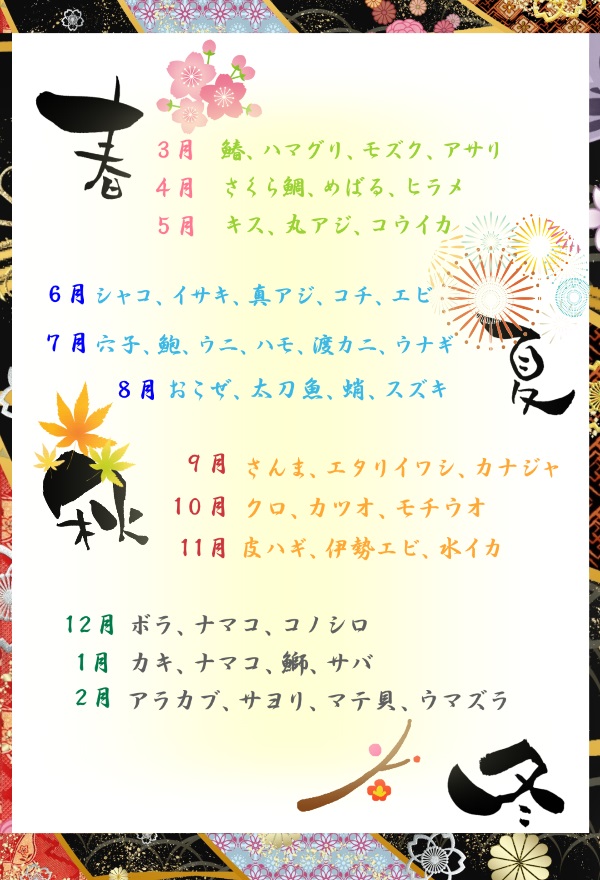 春
3月 鰆、ハマグリ、モズク、アサリ
4月 さくら鯛、めばる、ヒラメ
5月 キス、丸アジ、コウイカ
夏
6月 シャコ、イサキ、真アジ、コチ、エビ
7月 穴子、鮑、ウニ、ハモ、渡カニ、ウナギ
8月 おこぜ、太刀魚、蛸、スズキ
秋
9月 さんま、エタリイワシ、カナジャ
10月 クロ、カツオ、モチウオ
11月 皮ハギ、伊勢エビ、水イカ
12月 ボラ、ナマコ、コノシロ
1月 カキ、ナマコ、鰤、サバ
2月 アラカブ、サヨリ、マテ貝、ウマズラ
冬